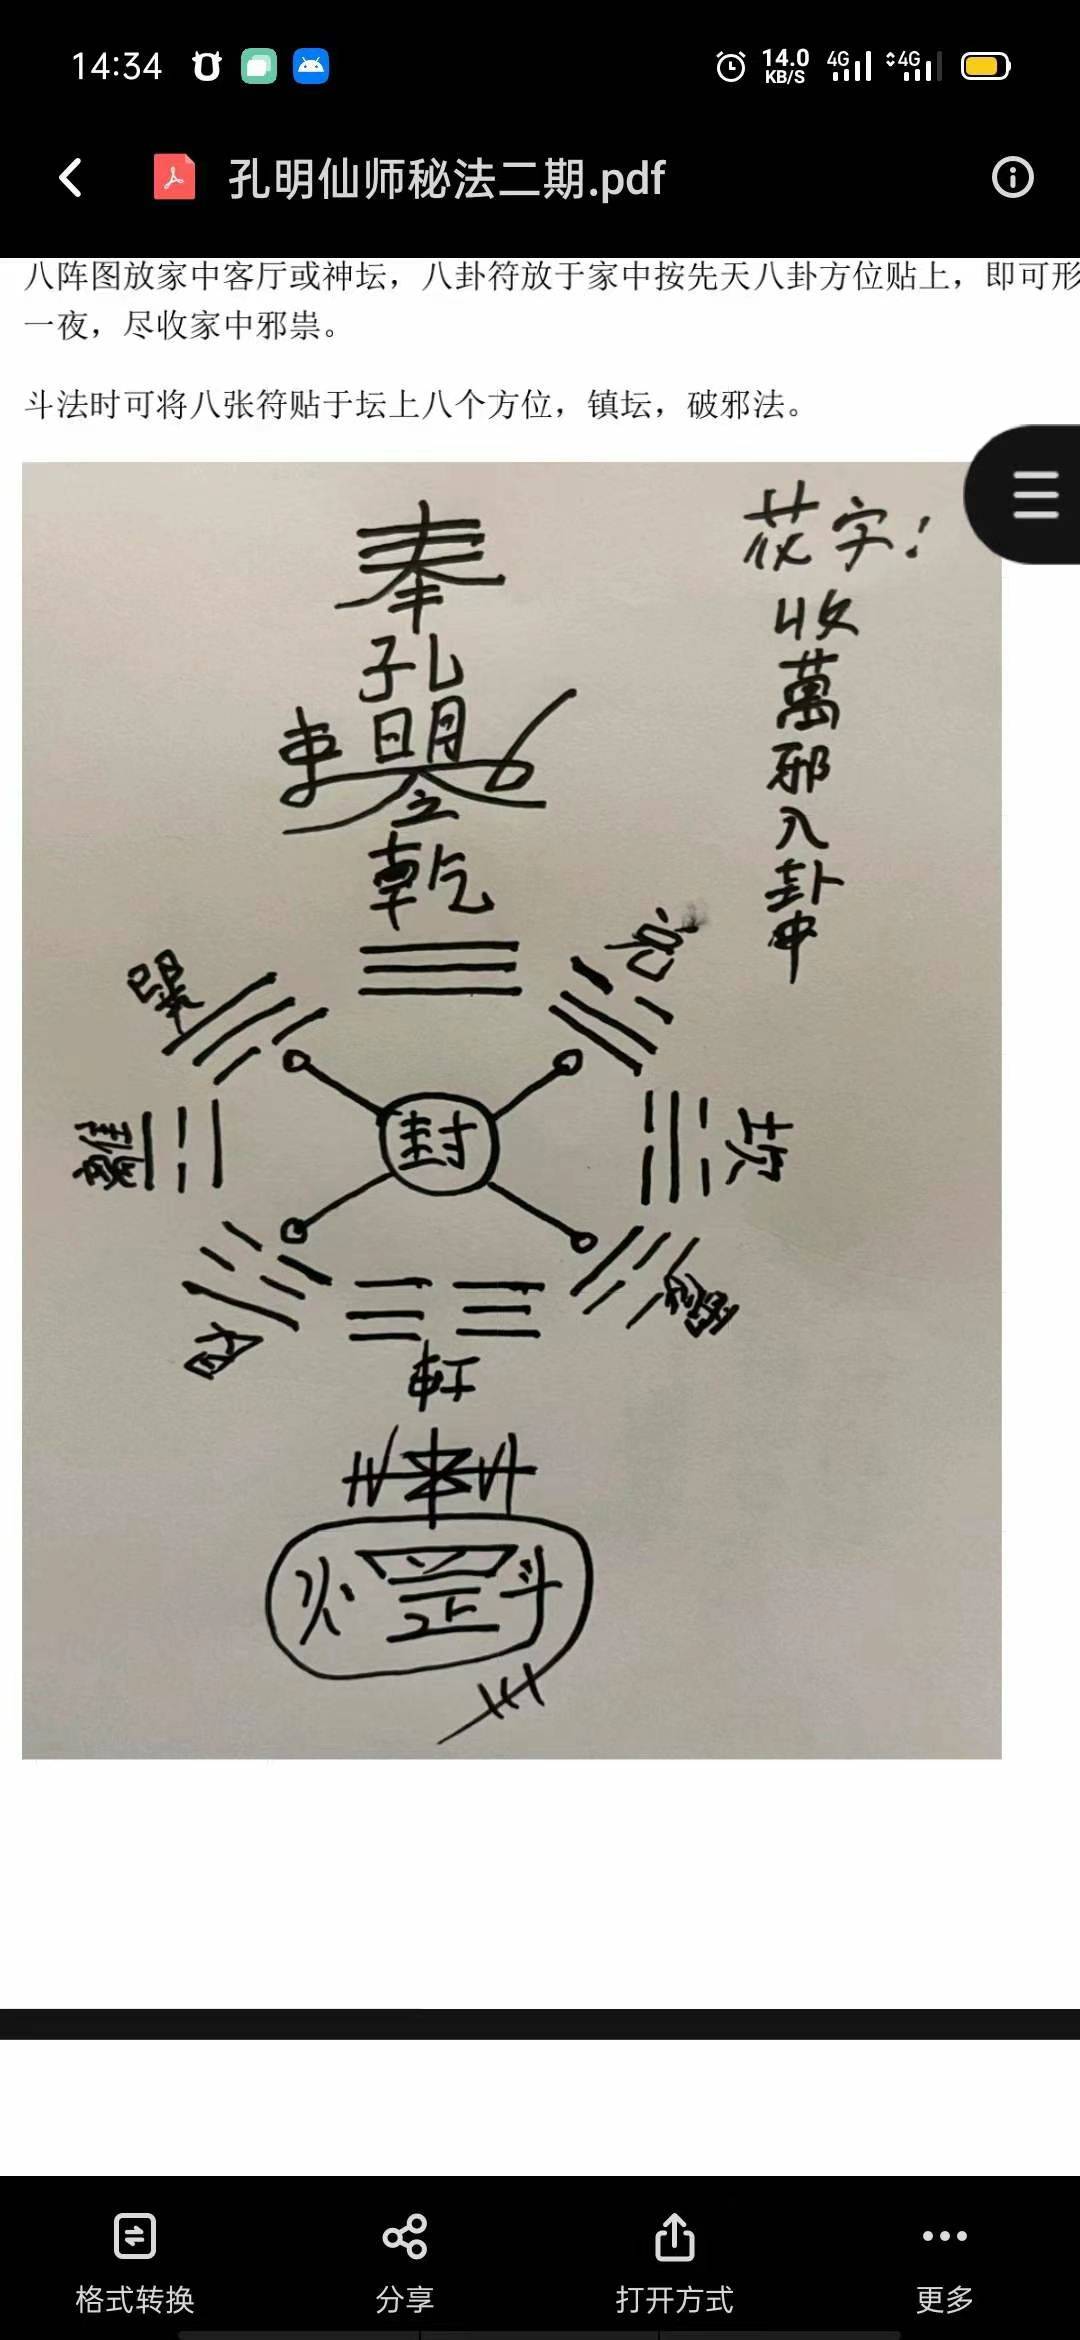 14:34
14.0
KB/S
4G
4G
孔明仙师秘法二期.pdf
八阵图放家中客厅或神坛，八卦符放于家中按先天八卦方位贴上，即可形
一夜，尽收家中邪祟。
斗法时可将八张符贴于坛上八个方位，镇坛，破邪法。
花字：
收
萬
邪
入
卦
中
奉
孔
明
乾
巽
兑
離
封
坎
艮
火 罡 斗
格式转换
分享
打开方式
更多